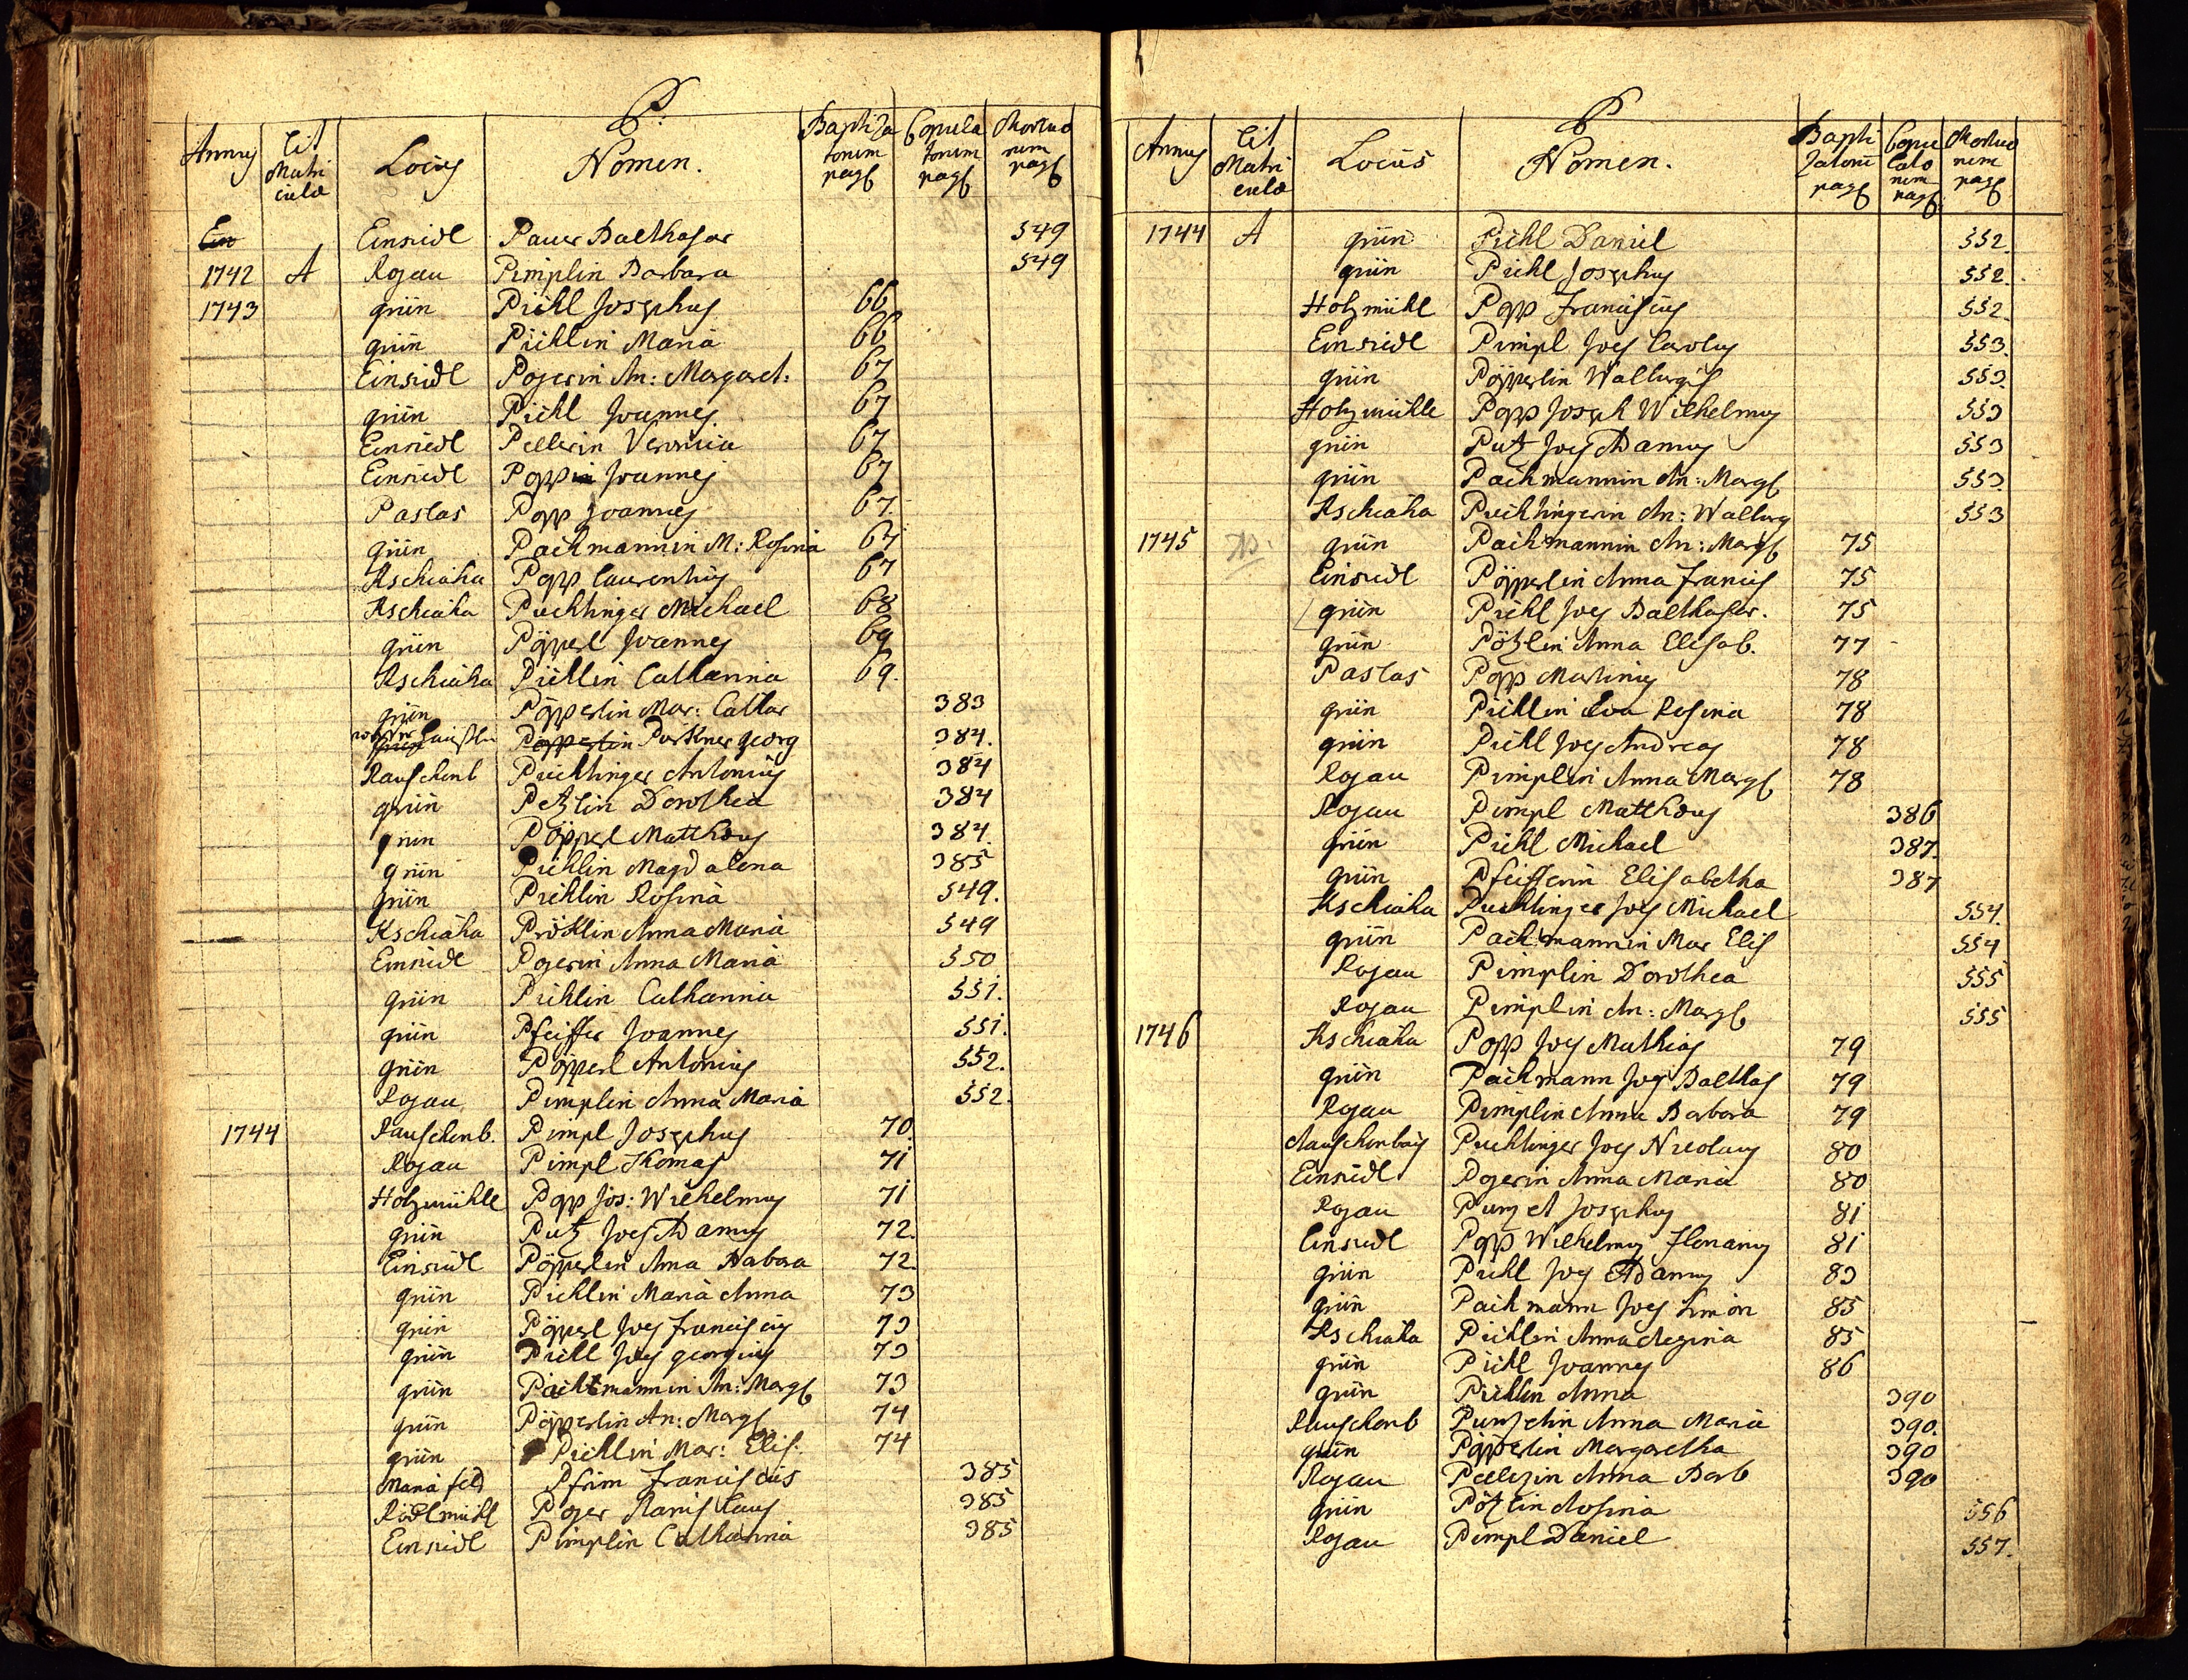 P.
Annus Lit Matriculæ Locus Nomen. Baptizatorum pag Copulatorum pag Mortuorum pag
Ein Einsidl Pauer Balthasar 549
1742 A Rojau Pimplin Barbara 549
1743 grün Pichl Josephus 66
grün Pichlin Maria 66
Einsidl Pogerin An: Margaret: 67
grün Pichl Joannes 67
Einsiedl Pellerin Veronica 67
Einsiedl Popp Joannes 67
Paslas Popp Joannes 67
grün Pachmannin M: Rosina 67
Kschiaha Popp Laurentius 67
Kschiaha Puchtinger Michael 68
grün Pöpperl Joannes 69
Kschiaha Pichlin Catharina 69.
grün Pöpperlin Mar: Cathar 383
Pöpperlin Pörkner georg 384.
Rauschenb Puchtinger Antonius 384
grün Petzlin Dorothea 384
grün Pöpperl Matthæus 384.
grün Pichlin Magdalena 385
grün Pichlin Rosina 549.
Kschiaha Pröklin Anna Maria 549
Einsiedl Pogerin Anna Maria 550
grün Pichlin Catharina 551.
grün Pfeiffer Joannes 551.
grün Pöpperl Antonius 552.
Rojau Pimplin Anna Maria 552.
1744 Rauschenb. Pimpl Josephus 70
Rojau Pimpl Thomas 71
Holzmühle Popp Jos: Wilhelmus 71
grün Putz Joes Adamus 72.
Einsidl Pöpperlin Anna Barbara 72.
grün Pichlin Maria Anna 73
grün Pöpperl Joes Franciscus 73
grün Pichl Joes georgius 73
grün Pachmannin An: Marg 73
grün Pöpperlin An: Marg 74
grün Pichlin Mar: Elis: 74
Mariafeld Pfrim Franciscus 385
Rödlmühl Poger Stanislaus 385
Einsidl Pimplin Catharina 385
P
Annus Lit Matriculæ Locus Nomen. Baptizatorum pag Copulatorum pag Mortuorum pag
1744 A grün Pichl Daniel 552
grün Pichl Josephus 552.
Holzmühl Popp Franciscus 552.
Einsiedl Pimpl Joes Carolus 553
grün Pöpperlin Walburgis 553.
Holzmühle Popp Joseph Wilhelmus 553
grün Putz Joes Adamus 553
grün Pachmannin An: Marg 553.
Kschiaha Puchtingerin An: Walburg 553
1745 grün Pachmannin An: Marg 75
Einsidl Pöpperlin Anna Francis 75
grün Pichl Joes Balthasar. 75
grün Pötzlin Anna Elisab. 77
Paslas Popp Martinus 78
grün Pichlin Eva Rosina 78
grün Pichl Joes Andreas 78
Rojau Pimplin Anna Marg 78
Rojau Pimpl Matthæus 386
grün Pichl Michael 387.
grün Pfeifferin Elisabetha 387
Kschiaha Puchtinger Joes Michael 554.
grün Pachmannin Mar Elis 554
Rojau Pimplin Dorothea 555
Rojau Pimplin An: Marg 555
1746 Kschiaha Popp Joes Mathias 79
grün Pachmann Joes Balthas 79
Rojau Pimplin Anna Barbara 79
Rauschenbach Puchtinger Joes Nicolaus 80
Einsidl Pogerin Anna Maria 80
Rojau Punzet Josephus 81
Einsiedl Popp Wilhelmus Florianus 81
grün Pichl Joes Adamus 83
grün Pachmann Joes Simon 85
Kschiaha Pichlin Anna Regina 85
grün Pichl Joannes 86
grün Pichlin Anna 390
Rauschenb Punzetin Anna Maria 390.
grün Pöpperlin Margaretha 390
Rojau Pellezin Anna Barb 390
grün Pötzlin Rosina 556
Rojau Pimpl Daniel 557.